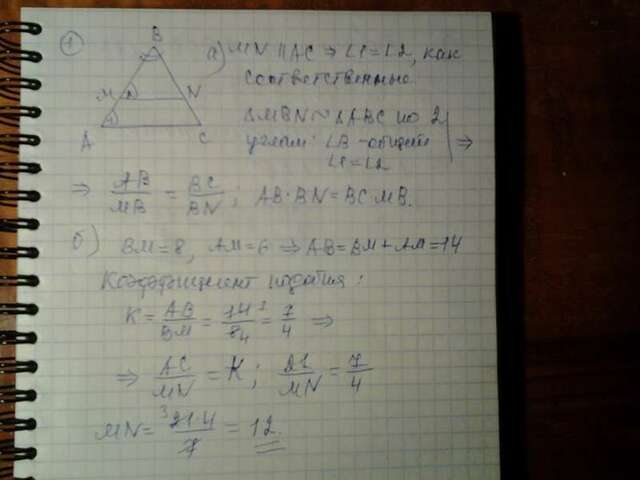 1
B
M N
2
1
A C
а) MN || AC ⇒ ∠1=∠2, как
соответственные.
ΔMBN ~ ΔABC по 2
углам: ∠B - общий
∠1=∠2 ⇒
⇒ AB/MB = BC/BN; AB·BN=BC·MB.
б) BM=8, AM=6 ⇒ AB=BM+AM=14
Коэффициент подобия:
K = AB/BM = 14/8 = 7/4 ⇒
⇒ AC/MN = K; 21/MN = 7/4
MN = 21·4/7 = 12.